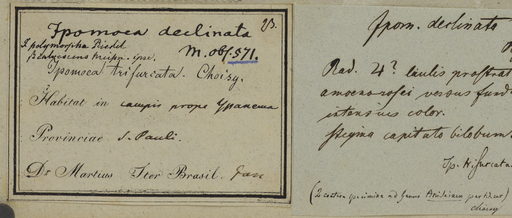 Ipomoea declinata
23.
I. polymorpha Riedel
M. obs. 571.
β canescens Meisn. ipse.
Ipomoea trifurcata. Choisy.
Habitat in campis prope Ypanema
Provinciae S. Pauli.
Dr Martius Iter Brasil. Jan
Ipom. declinata
Rad. 4? caulis prostrat
amoeno rosei versus fund
intensius color.
Stigma capitato bilobum.
Ip. trifurcata
(2 cetera specimina ad genus Aniseiam pertinent)
Choisy